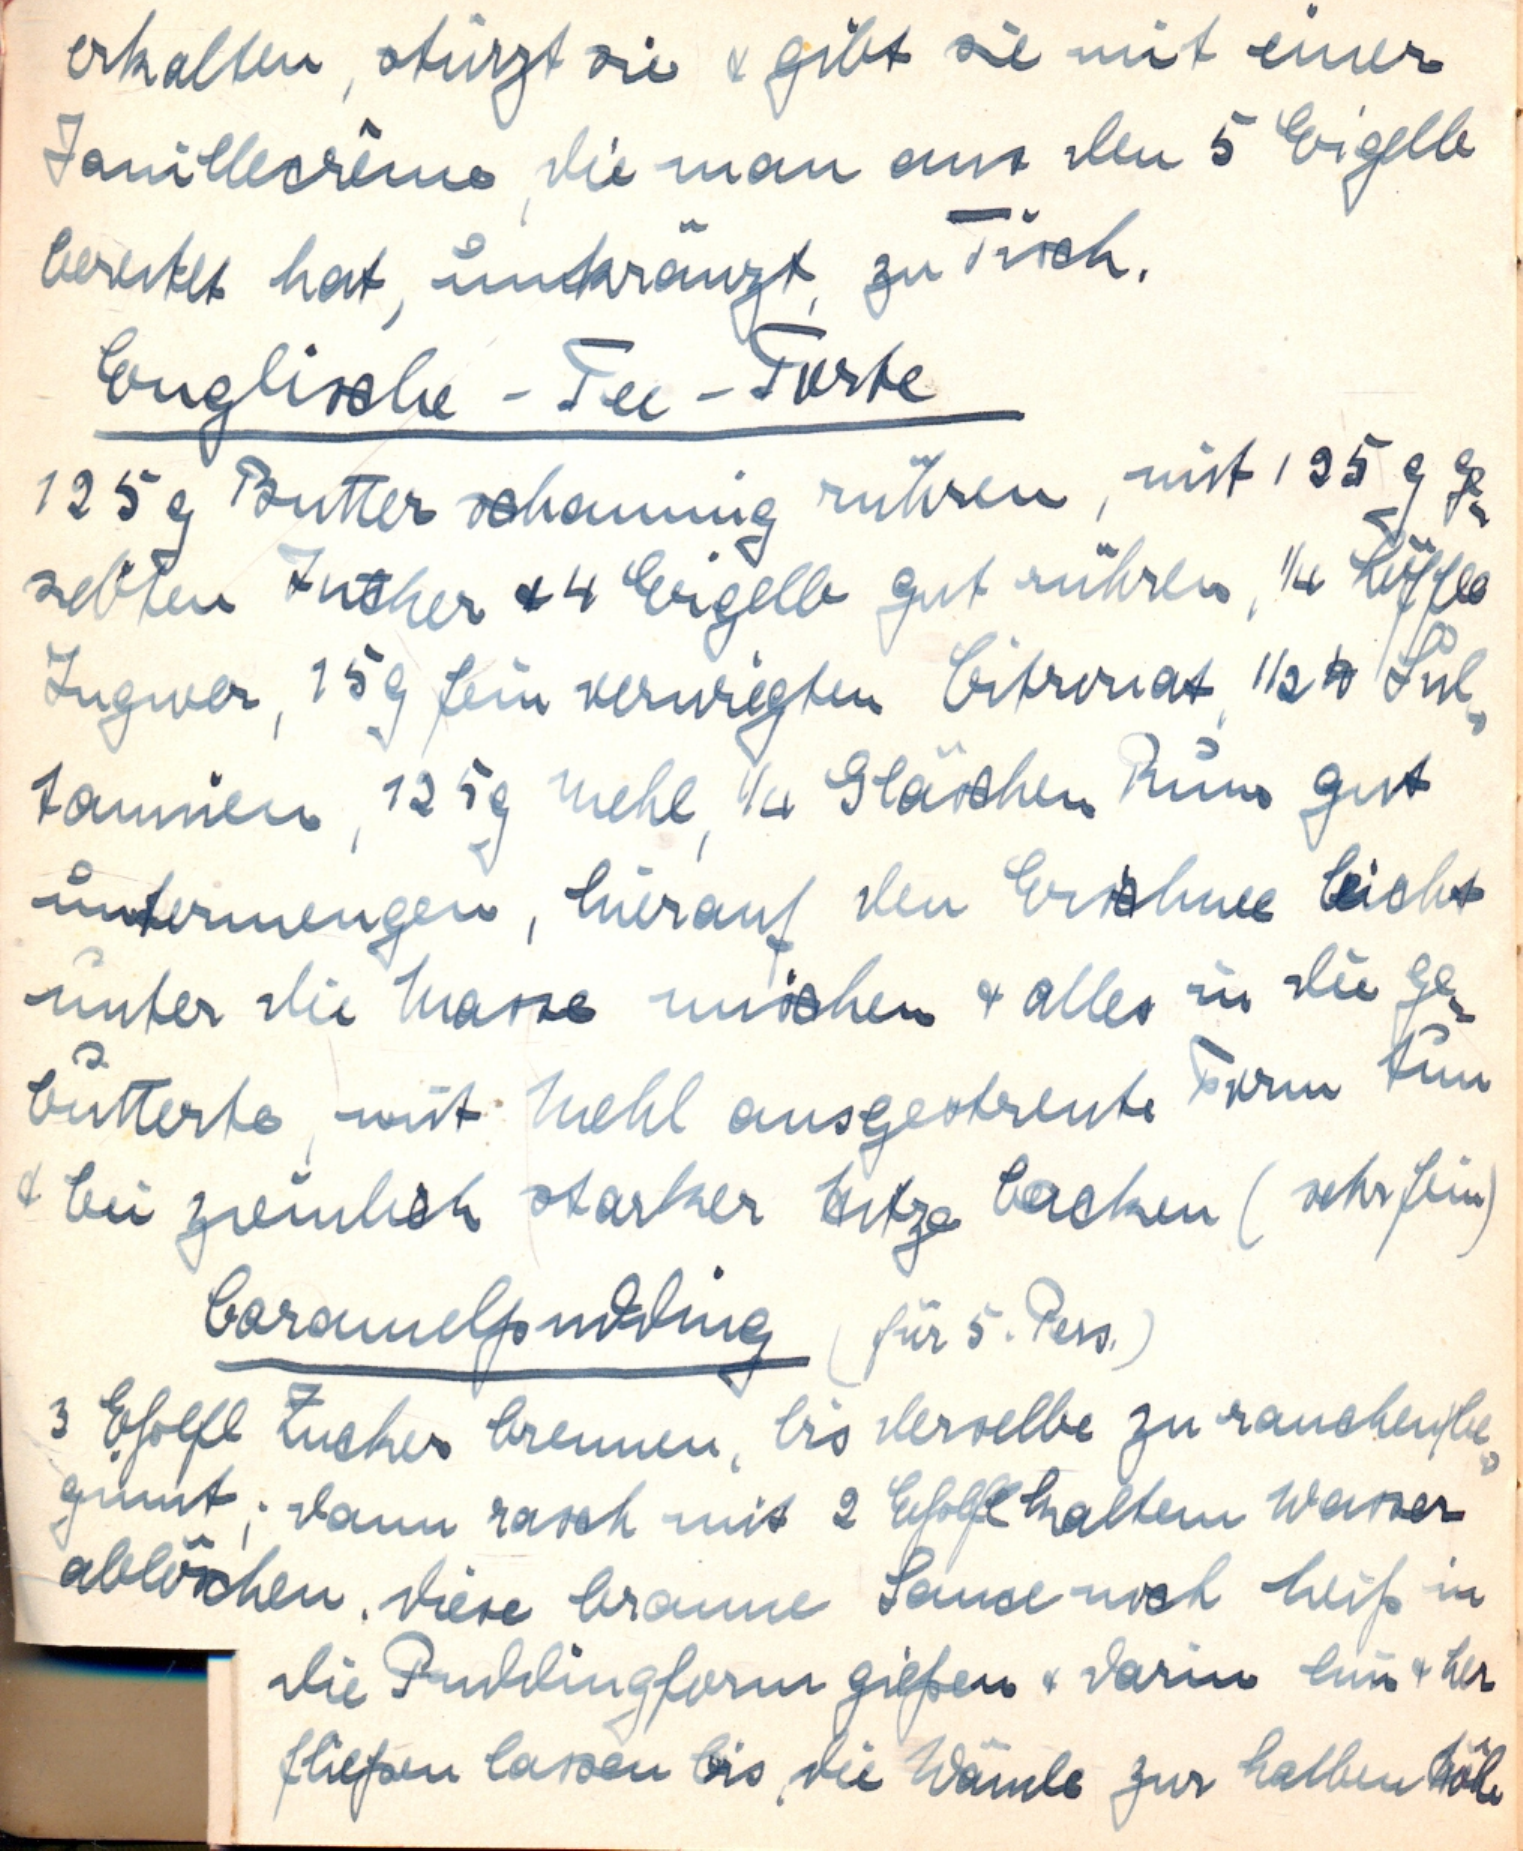 erkalten, stürzt sie & gibt sie mit einer
Vanillecrême, die man aus den 5 Eigelb
bereitet hat, umkränzt, zu Tisch.
Englische - Tee - Torte
125 g Butter schaumig rühren, mit 125 g ge-
siebten Zucker & 4 Eigelb gut rühren, 1/4 Löffel
Ingwer, 15 g fein verwiegten Citronat, 1/2 Sul-
taninen, 125 g Mehl, 1/4 Gläschen Rum gut
untermengen, hierauf den Eischnee leicht
unter die Masse mischen & alles in die ge-
butterte, mit Mehl ausgestreute Form tun
& bei ziemlich starker Hitze backen (sehr fein)
Caramelpudding (für 5. Pers.)
3 Eßlfl Zucker brennen, bis derselbe zu rauchen be-
ginnt; dann rasch mit 2 Eßlfl kaltem Wasser
ablöschen. Diese braune Sauce noch heiß in
die Puddingform gießen & darin hin & her
fließen lassen bis die Wände zur halben Höhe